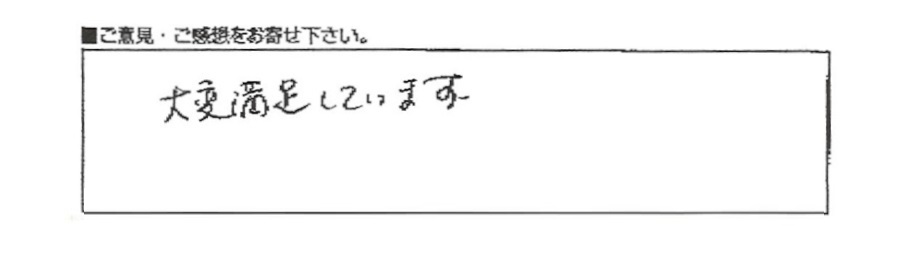 ■ご意見・ご感想をお寄せ下さい。
大変満足しています